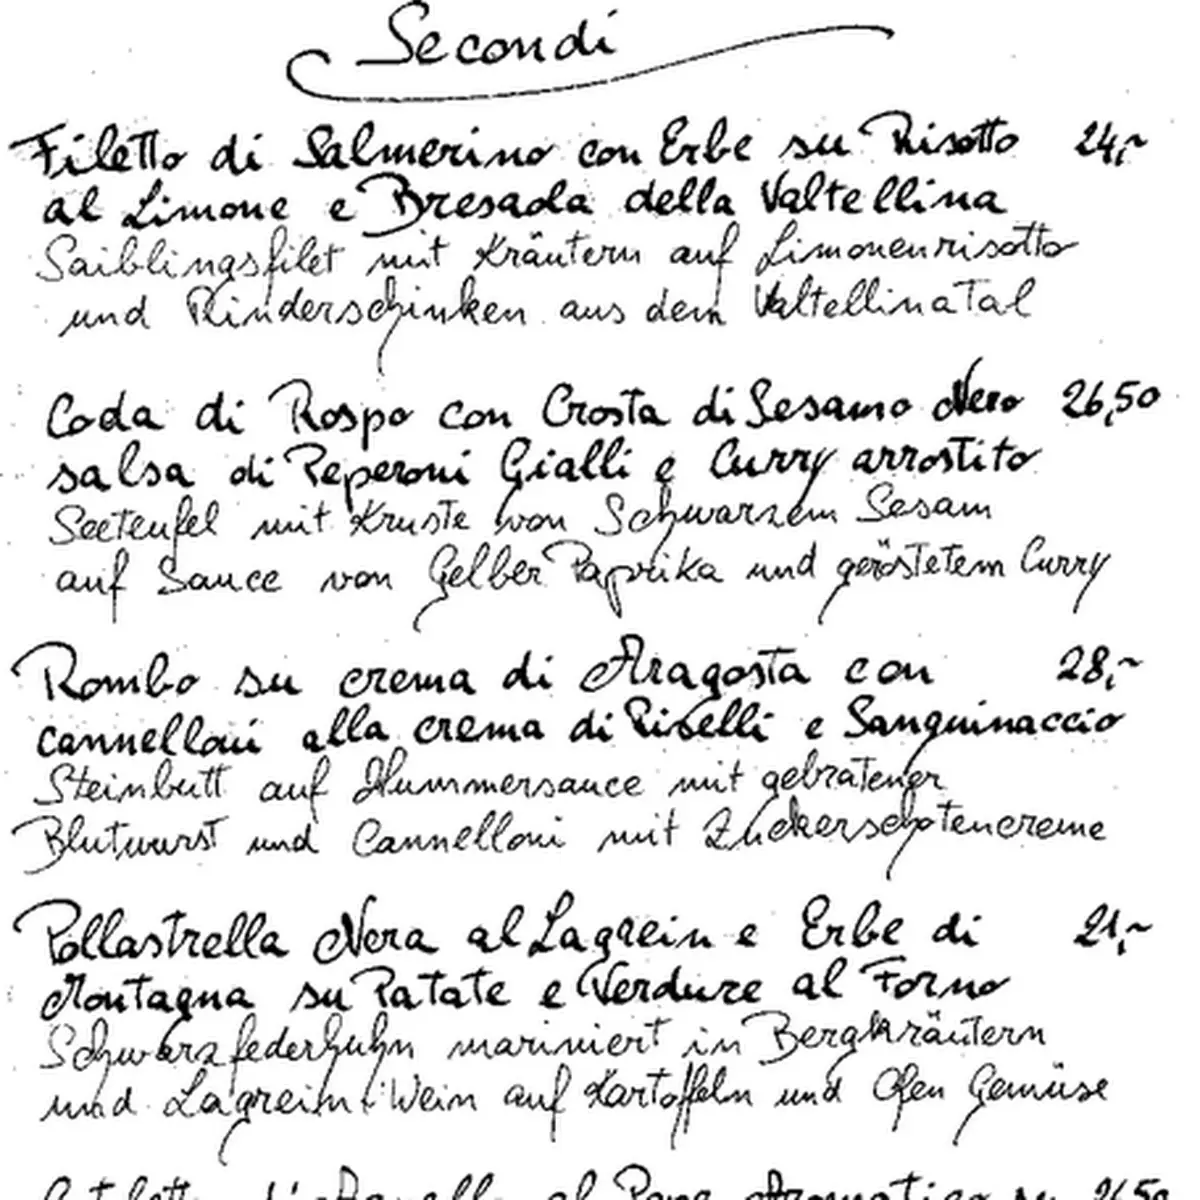 Secondi
Filetto di Salmerino con Erbe su Risotto 24,-
al Limone e Bresaola della Valtellina
Saiblingsfilet mit Kräutern auf Limonenrisotto
und Rinderschinken aus dem Valtellina Tal
Coda di Rospo con Crosta di Sesamo Nero 26,50
salsa di Peperoni Gialli e Curry arrostito
Seeteufel mit Kruste von Schwarzem Sesam
auf Sauce von Gelber Paprika und geröstetem Curry
Rombo su crema di Aragosta con 28,-
cannelloni alla crema di Piselli e Sanguinaccio
Steinbutt auf Hummersauce mit gebratener
Blutwurst und Cannelloni mit Zuckerschotencreme
Pollastrella Nera al Lagrein e Erbe di 21,-
Montagna su Patate e Verdure al Forno
Schwarzfederhuhn mariniert in Bergkräutern
und Lagrein-Wein auf Kartoffeln und Ofen Gemüse
al Pane Aromatico su 26,50